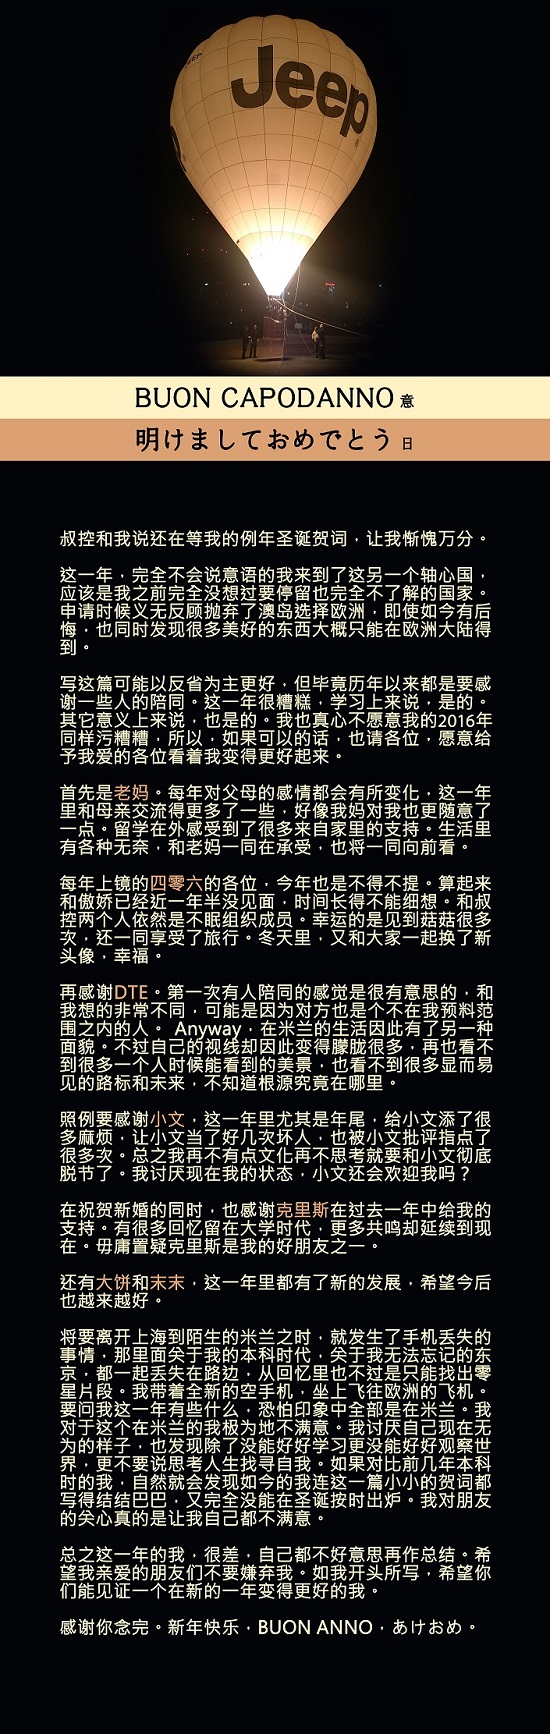 Jeep
BUON CAPODANNO 意
明けましておめでとう 日
叔控和我说还在等我的例年圣诞贺词，让我惭愧万分。
这一年，完全不会说意语的我来到了这另一个轴心国，
应该是我之前完全没想过要停留也完全不了解的国家。
申请时候义无反顾抛弃了澳岛选择欧洲，即使如今有后
悔，也同时发现很多美好的东西大概只能在欧洲大陆得
到。
写这篇可能以反省为主更好，但毕竟历年以来都是要感
谢一些人的陪同。这一年很糟糕，学习上来说，是的。
其它意义上来说，也是的。我也真心不愿意我的2016年
同样污糟糟，所以，如果可以的话，也请各位，愿意给
予我爱的各位看着我变得更好起来。
首先是老妈。每年对父母的感情都会有所变化，这一年
里和母亲交流得更多了一些，好像我妈对我也更随意了
一点。留学在外感受到了很多来自家里的支持。生活里
有各种无奈，和老妈一同在承受，也将一同向前看。
每年上镜的四零六的各位，今年也是不得不提。算起来
和傲娇已经近一年半没见面，时间长得不能细想。和叔
控两个人依然是不眠组织成员。幸运的是见到菇菇很多
次，还一同享受了旅行。冬天里，又和大家一起换了新
头像，幸福。
再感谢DTE。第一次有人陪同的感觉是很有意思的，和
我想的非常不同，可能是因为对方也是个不在我预料范
围之内的人。 Anyway，在米兰的生活因此有了另一种
面貌。不过自己的视线却因此变得朦胧很多，再也看不
到很多一个人时候能看到的美景，也看不到很多显而易
见的路标和未来，不知道根源究竟在哪里。
照例要感谢小文，这一年里尤其是年尾，给小文添了很
多麻烦，让小文当了好几次坏人，也被小文批评指点了
很多次。总之我再不有点文化再不思考就要和小文彻底
脱节了。我讨厌现在我的状态，小文还会欢迎我吗？
在祝贺新婚的同时，也感谢克里斯在过去一年中给我的
支持。有很多回忆留在大学时代，更多共鸣却延续到现
在。毋庸置疑克里斯是我的好朋友之一。
还有大饼和末末，这一年里都有了新的发展，希望今后
也越来越好。
将要离开上海到陌生的米兰之时，就发生了手机丢失的
事情，那里面关于我的本科时代，关于我无法忘记的东
京，都一起丢失在路边，从回忆里也不过是只能找出零
星片段。我带着全新的空手机，坐上飞往欧洲的飞机。
要问我这一年有些什么，恐怕印象中全部是在米兰。我
对于这个在米兰的我极为地不满意。我讨厌自己现在无
为的样子，也发现除了没能好好学习更没能好好观察世
界，更不要说思考人生找寻自我。如果对比前几年本科
时的我，自然就会发现如今的我连这一篇小小的贺词都
写得结结巴巴，又完全没能在圣诞按时出炉。我对朋友
的关心真的是让我自己都不满意。
总之这一年的我，很差，自己都不好意思再作总结。希
望我亲爱的朋友们不要嫌弃我。如我开头所写，希望你
们能见证一个在新的一年变得更好的我。
感谢你念完。新年快乐，BUON ANNO，あけおめ。